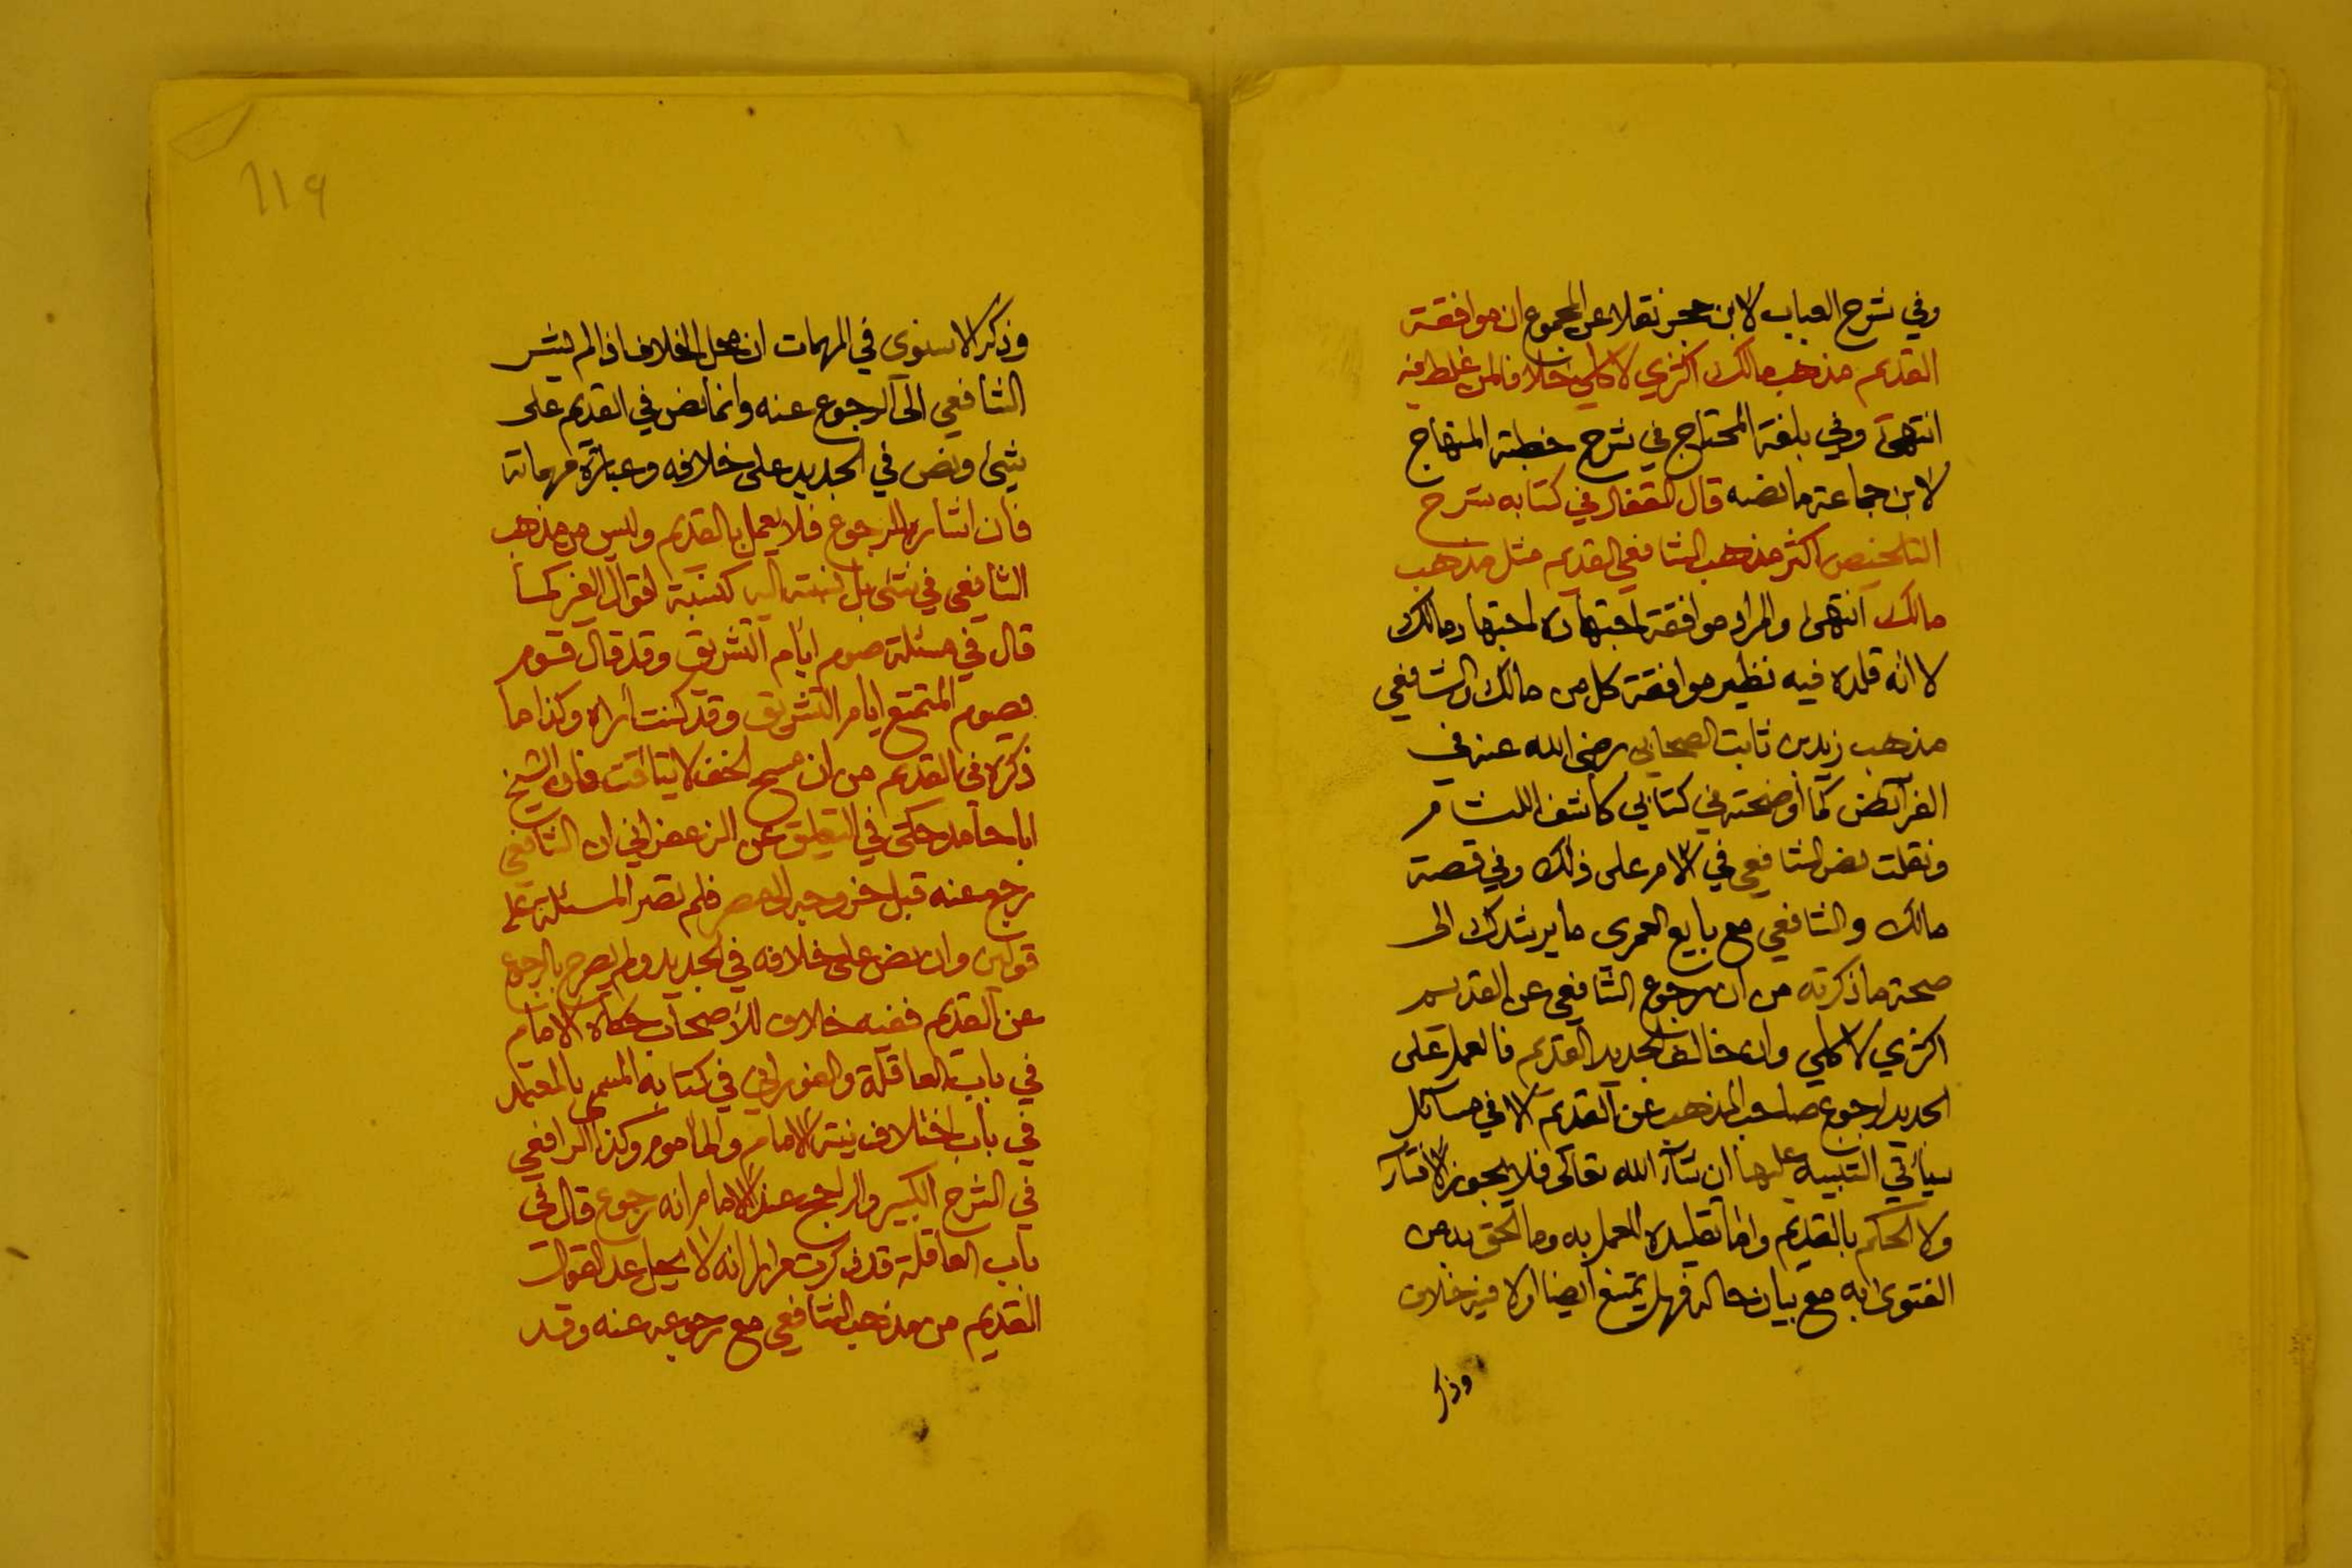 وفي شرح العباب لابن حجر نقلا عن المجموع ان موافقة
القديم مذهب مالك اكثري لا كلي خلافا لمن غلط فيه
انتهى وفي بلغة المحتاج في شرح خطبة المنهاج
لابن جماعة ما نصه قال القفال في كتابه شرح
التلخيص اكثر مذهب الشافعي القديم مثل مذهب
مالك انتهى والمراد موافقة اجتهاده لاجتهاد مالك
لا انه قلده فيه نظير موافقة كل من مالك والشافعي
مذهب زيد بن ثابت الصحابي رضي الله عنه في
الفرائض كما اوضحته في كتابي كاشف اللثام
ونقلت نص الشافعي في الام على ذلك وفي قصة
مالك والشافعي مع بايع القمري ما يرشدك الى
صحة ما ذكرته من ان رجوع الشافعي عن القديم
اكثري لا كلي وان خالف الجديد القديم فالعمل على
الجديد لرجوع صاحب المذهب عن القديم الا في مسائل
سيأتي التنبيه عليها ان شآء الله تعالى فلا يجوز الافتآء
ولا الحكم بالقديم واما تقليده للعمل به وما الحق به من
الفتوى به مع بيان حاله فهل يمتنع ايضا اولا فيه خلاف
وذكر
119
وذكر الاسنوي في المهمات ان محل الخلاف اذا لم يشر
الشافعي الى الرجوع عنه وانما نص في القديم على
شئ ونص في الجديد على خلافه وعبارة مهماته
فان اشار للرجوع فلا يعمل بالقديم وليس من مذهب
الشافعي في شئ بل نسبته اليه كنسبة اقوال الغير كما
قال في مسئلة صوم ايام التشريق وقد قال قوم
يصوم المتمتع ايام التشريق وقد كنت اراه وكذا ما
ذكره في القديم من ان مسح الخف لا يتاقت فان الشيخ
ابا حامد حكى في التعليق عن الزعفراني ان الشافعي
رجع عنه قبل خروجه الى مصر فلم تصر المسئلة على
قولين وان نص على خلافه في الجديد ولم يصرح بالرجوع
عن القديم ففيه خلاف للاصحاب حكاه الامام
في باب العاقلة والفوراني في كتابه المسمى بالمعتمد
في باب اختلاف نية الامام والماموم وكذا الرافعي
في الشرح الكبير والراجح عند الامام انه رجوع قال في
باب العاقلة قد ذكرت مرارا انه لا يحل عد القول
القديم من مذهب الشافعي مع رجوعه عنه وقد